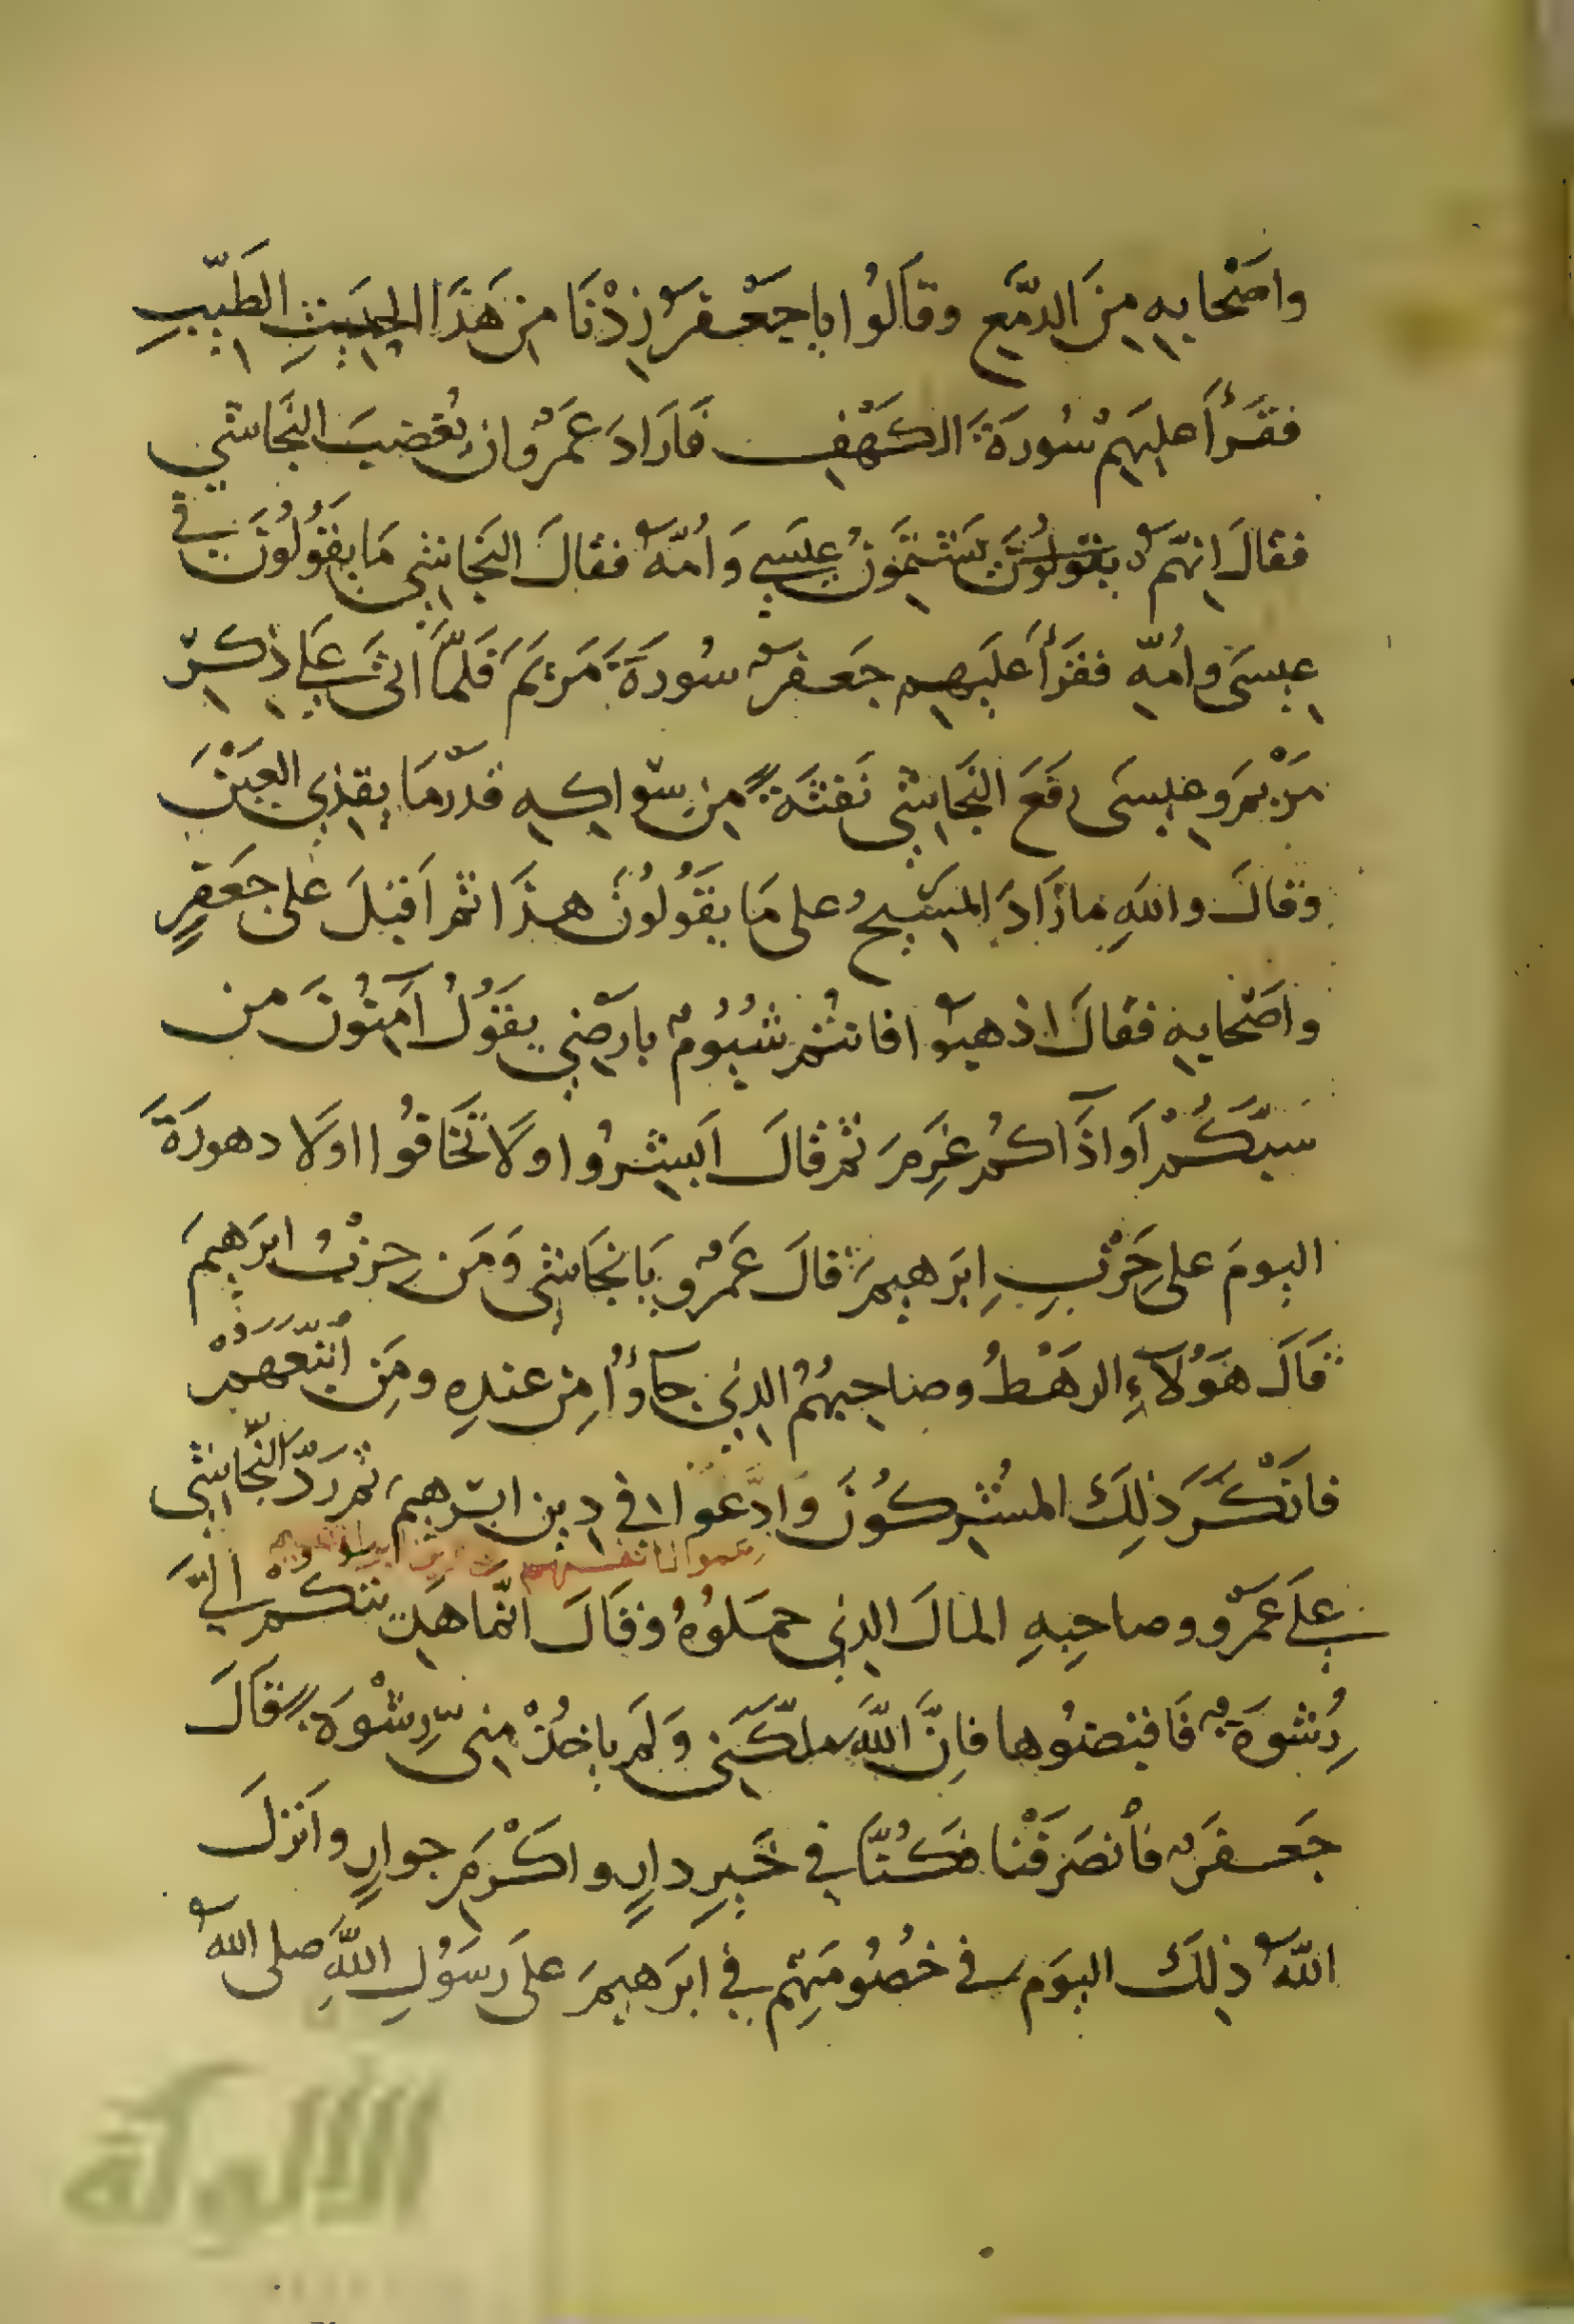 واصْحابِهِ مِنَ الدَّمْعِ وقالُوا ياجَعْفرُ زِدْنَا مِن هَذَا الحديثِ الطَيِّبِ
فقرَأ عليهِمْ سُورَةَ الكَهْفِ فَارَادَ عَمْرٌو ان يُغضِبَ النَّجَاشي
فقالَ اِنّهمْ يَشتِمُونَ عِيسَي وَاُمّهُ فقالَ النجَاشي مَا يَقُولُونَ في
عِيسَى واُمّهِ فقرَأ عليهِم جَعفرٌ سُورَةَ مَرْيَمَ فَلمَّا اتَى عَلي ذِكرِ
مَرْيمَ وعِيسَى رفَعَ النَّجَاشي نَفثَةً مِن سِوَاكِهِ قدْرَ مَا يقذِي العَيْنَ
وقالَ واللهِ مازَادَ المسِيحُ على مَا يقُولُونَ هذَا ثم اَقبَلَ على جَعفرٍ
واَصْحَابِهِ فقالَ اذهبُوا فانتُم شُيُومٌ بارْضِي يقُولُ آمِنُونَ من
سَبَّكُمْ اَو اذَاكُم غَرِمَ ثم قالَ اَبْشِرُوا ولَا تَخَافُوا ولَا دهورَةَ
اليومَ على حِزْبِ اِبرَهيمَ قالَ عَمْرٌو يَا نجَاشِي وَمَن حِزبُ ابرَهِيمَ
قَالَ هَؤُلَآءِ الرهْطُ وصَاحِبُهُمُ الذِي جَاؤُا مِن عندِهِ ومَنِ اتّبَعَهمْ
فَانكَرَ ذلِكَ المشْرِكُونَ وَادَّعَوا في دِينِ ابرَهيمَ ثم رَدّ النَّجَاشي
زعموا لانفسهم
عَلَى عَمْرٍو وصاحِبِهِ المالَ الذِي حمَلوُهُ وقَالَ انّمَا هَدِيّتكُمْ الَيَّ
رِشْوَةٌ فَاقبضُوها فاِنَّ اللّهَ ملّكَنِي وَلَم ياخُذْ مِنِّي رِشْوَةً قَالَ
جَعفرٌ فَانصَرَفْنَا فكُنَّا في خَيرِ دارٍ واكْرَمِ جوارٍ واَنزلَ
اللهُ ذلِكَ اليوَم في خُصُومَتِهِم في ابرَهيمَ علَى رسَوُلِ اللهِ صلى الله